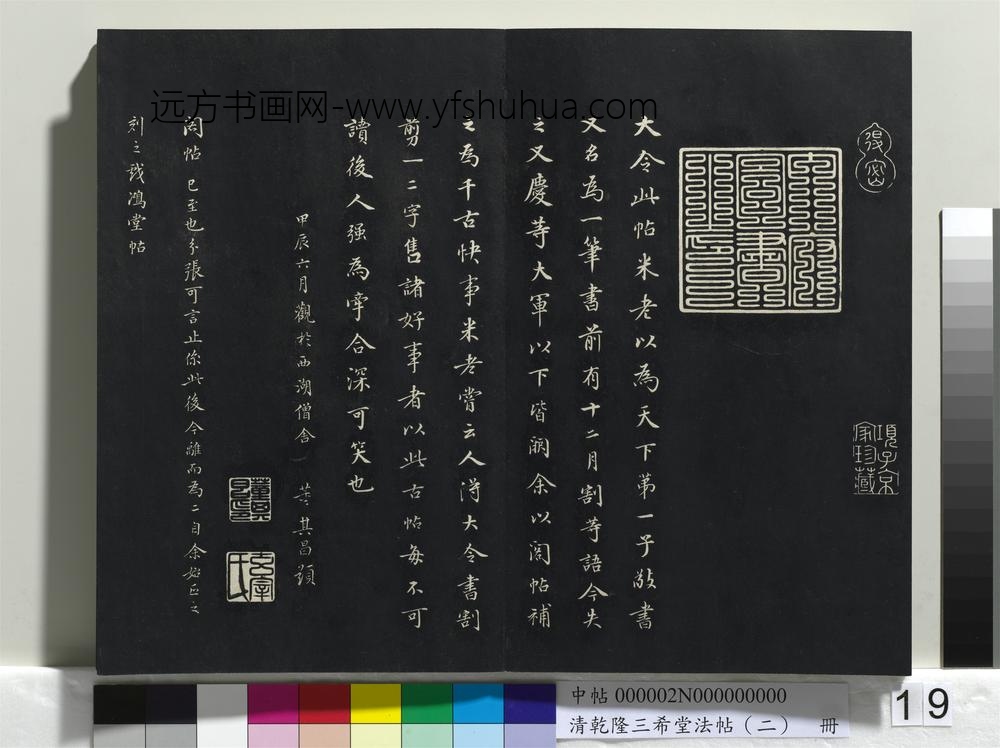 远方书画网-www.yfshuhua.com
得密
項子京
家珍藏
大令此帖米老以為天下第一子敬書
又名為一筆書前有十二月割等語今失
之又慶等大軍以下皆闕余以閣帖補
之為千古快事米老嘗云人得大令書割
剪一二字售諸好事者以此古帖每不可
讀後人强為牽合深可笑也
甲辰六月觀於西湖僧舍 董其昌題
閣帖已至也分張可言止係此後今離而為二自余始正之
刻之戲鴻堂帖
中帖 000002N000000000
清乾隆三希堂法帖（二） 冊
19